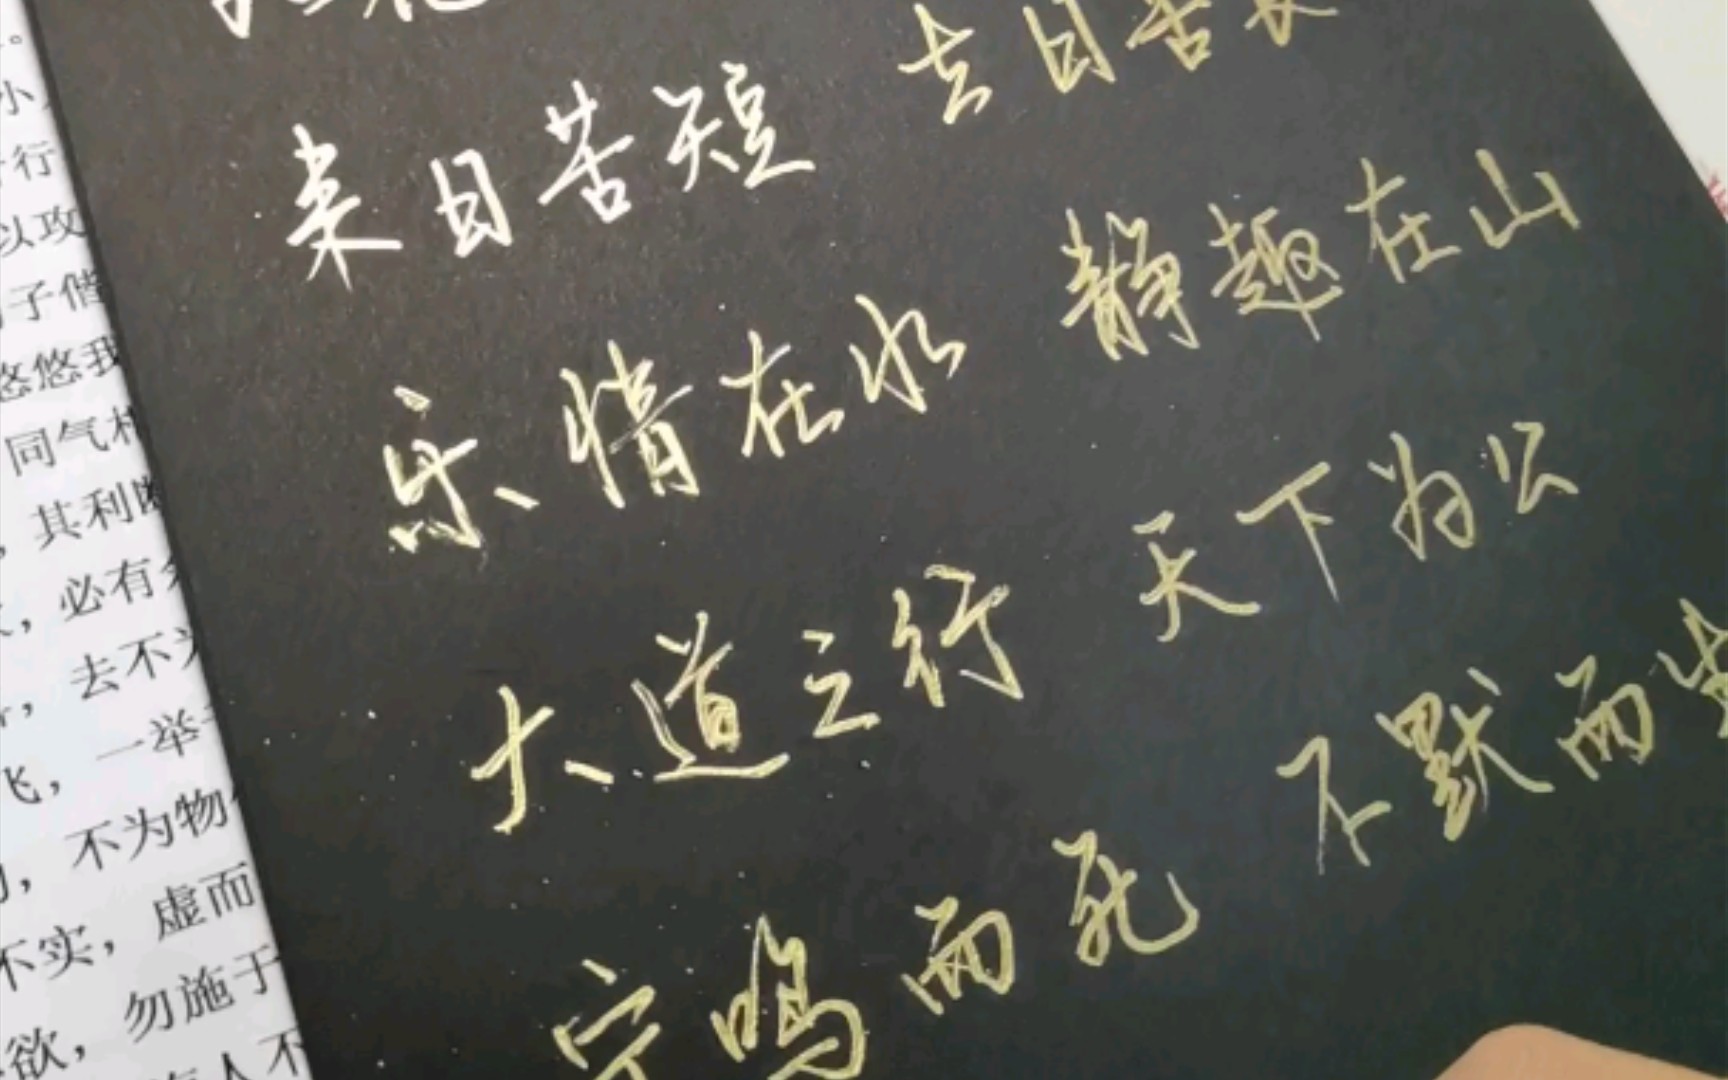 来日苦短 去日苦长
乐情在水 静趣在山
大道之行 天下为公
宁鸣而死 不默而生
小
行
以攻
子
悠悠我
同气
，其利断
，必有
，去不
飞，一举
，不为物
不实，虚而
欲，勿施于
人不